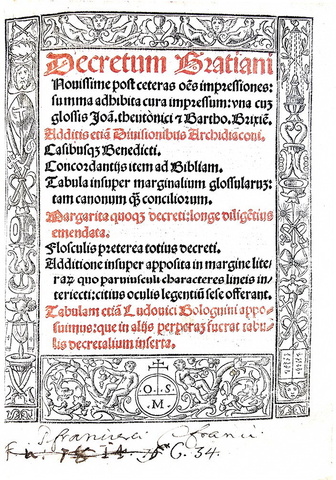 Decretum Gratiani
Nouissime post ceteras oẽs impressiones:
summa adhibita cura impressum: vna cuʒ
glossis Joã. theutonici ⁊ Bartho. Brixiẽ.
Additis etiã Diuisionibus Archidiaconi.
Casibusqʒ Benedicti.
Concordantijs item ad Bibliam.
Tabula insuper marginalium glossularuʒ:
tam canonum qʒ̃ conciliorum.
Margarita quoqʒ decreti: longe diligẽtius
emendata.
Flosculis preterea totius decreti.
Additione insuper apposita in margine lite-
raꝝ quo paruiusculi characteres lineis in-
teriecti: citius oculis legentiũ sese offerant.
Tabulam etiã Ludouici Bolognini appo-
suimus: que in alijs perperaʒ fuerat tabu-
lis decretalium inserta.
O. S.
M.
C. 34.